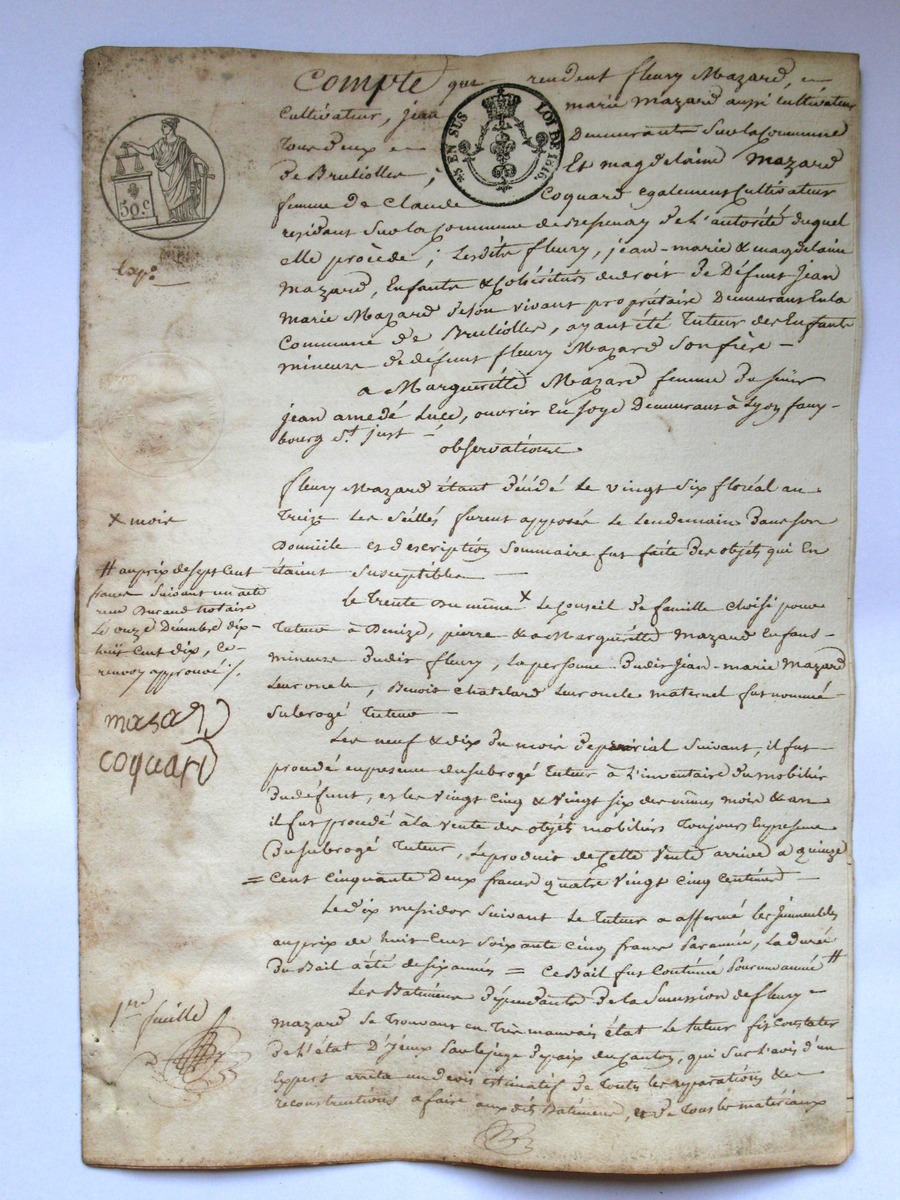 Compte que rendent fleury Mazard,
Cultivateur, jean marie mazard aussi Cultivateur
tous deux Demeurants Sur la Commune
de Brulliolles, Et magdelaine Mazard
femme de Claude Coquard egalement Cultivateur
residant Sur la Commune de Bessenay de l'autorité duquel
elle procède; Lesdits fleury, jean-marie & magdelaine
Mazard, Enfants & Cohéritiers de droit de Défunt Jean
Marie Mazard de son vivant propriétaire Demeurant En la
Commune de Brulliolles, ayant été tuteur des Enfants
mineurs de défunt fleury Mazard Son frère -
a Margueritte Mazard femme du Sieur
jean amedé Luce, ouvrier En soye Demeurant à Lyon faux-
bourg St just -
observations
fleury Mazard étant décédé Le vingt Six floréal an
treize Les Scellés furent apposés Le Lendemain dans son
Domicile et description Sommaire fut faite Des objets qui En
étaient Susceptibles -
Le trente Du même X Le Conseil de famille choisi pour
tuteur à Denize, pierre & a Marguerite Mazard Enfans
mineurs dudit fleury, La personne dudit Jean-marie Mazard
Leur oncle, Benoit Chatelard Leur oncle maternel fut nommé
Subrogé tuteur -
Les neuf & dix du mois de prairial Suivant, il fut
procédé en presence du Subrogé tuteur à L'inventaire du mobilier
du défunt, et les vingt cinq & vingt six des mêmes mois & an
il fut procédé à la vente des objets mobiliers toujours En presence
du subrogé tuteur, Le produit de Cette vente arrive a quinze
= Cent Cinquante Deux francs quatre vingt Cinq Centimes -
Le dix messidor Suivant Le tuteur a affermé Les Immeubles
au prix de huit Cent Soixante Cinq francs Par année, La durée
du Bail a été de six années = Ce Bail fut Continué Pour une année #
Les Batiments dépendants de la Succession de fleury
Mazard Se trouvant en très mauvais état Le tuteur fit Constater
de l'état D'iceux Par le juge de paix du Canton, qui Sur l'avis d'un
Expert arrêta un devis estimatif de toutes les reparations &
reconstructions a faire aux dits Batiments, et de tous les materiaux
50.c
25 EN SUS
LOI DE 1816.
X mois
# au prix de sept Cent
francs Suivant un acte
reçu Durand notaire
Le onze Décembre dix-
huit Cent dix, Ce
renvoy approuvé
mazard
coquard
1ere feuille